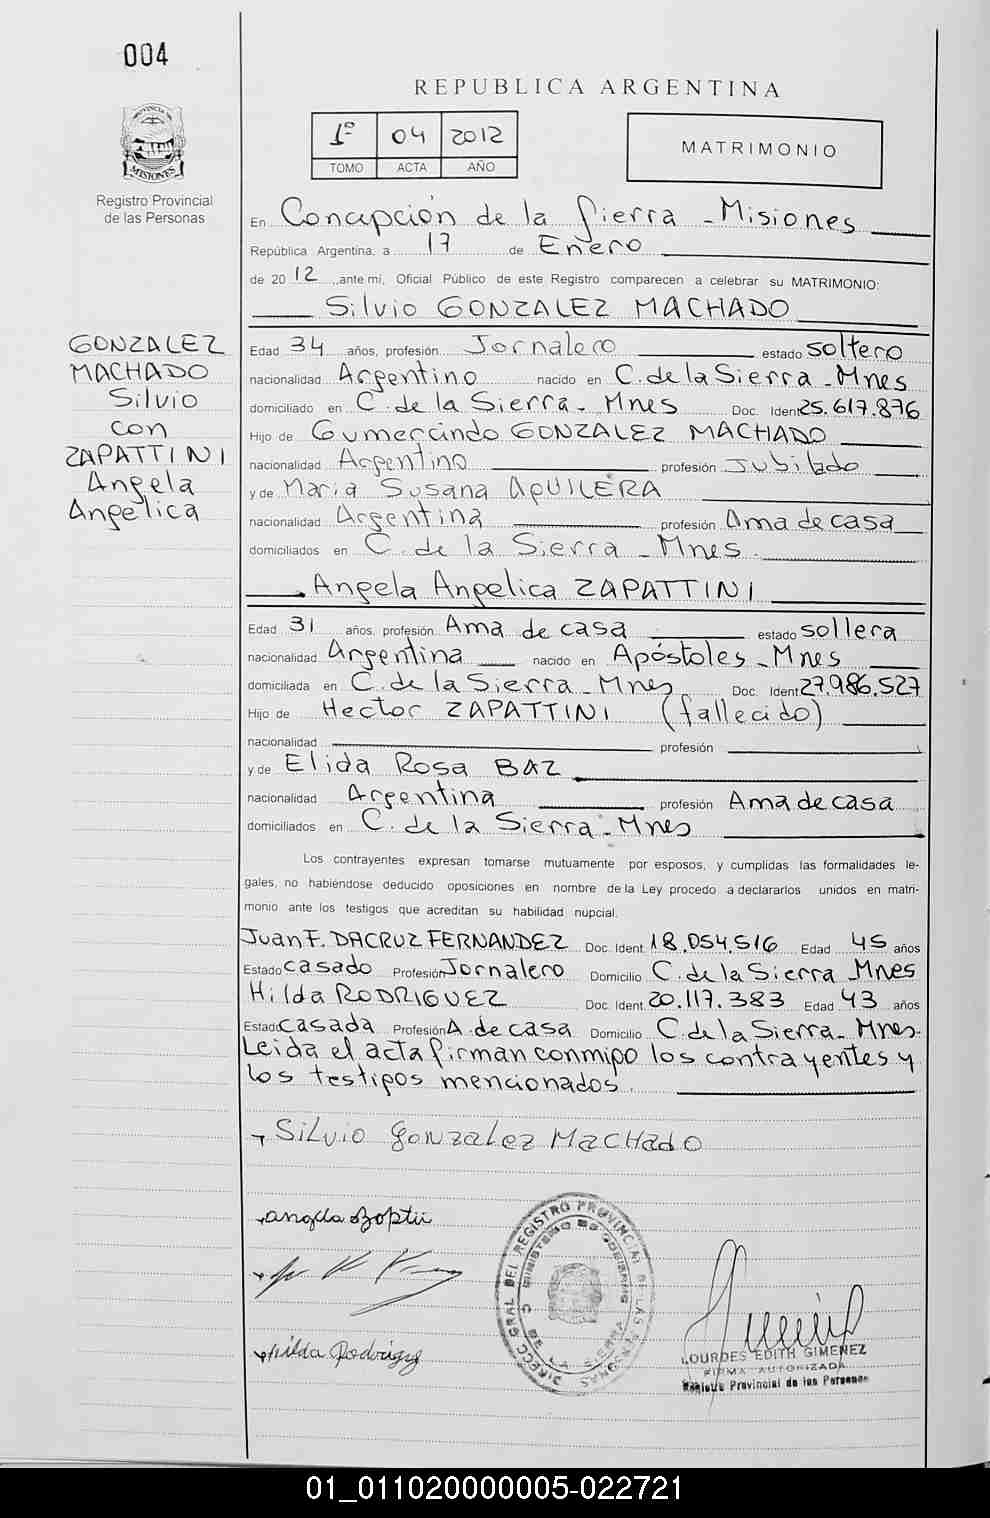 004
REPUBLICA ARGENTINA
1º 04 2012
TOMO ACTA AÑO
MATRIMONIO
PROVINCIA DE
MISIONES
Registro Provincial
de las Personas
En Concepción de la Sierra - Misiones
República Argentina, a 17 de Enero
de 2012, ante mi, Oficial Público de este Registro comparecen a celebrar su MATRIMONIO:
Silvio GONZALEZ MACHADO
GONZALEZ
MACHADO
Silvio
con
ZAPATTINI
Angela
Angelica
Edad 34 años, profesión Jornalero estado soltero
nacionalidad Argentino nacido en C. de la Sierra - Mnes
domiciliado en C. de la Sierra - Mnes Doc. Ident 25.617.876
Hijo de Gumercindo GONZALEZ MACHADO
nacionalidad Argentino profesión Jubilado
y de Maria Susana AGUILERA
nacionalidad Argentina profesión Ama de casa
domiciliados en C. de la Sierra - Mnes.
Angela Angelica ZAPATTINI
Edad 31 años, profesión Ama de casa estado soltera
nacionalidad Argentina nacido en Apóstoles - Mnes
domiciliada en C. de la Sierra - Mnes Doc. Ident 27.986.527
Hijo de Hector ZAPATTINI (fallecido)
nacionalidad profesión
y de Elida Rosa BAZ
nacionalidad Argentina profesión Ama de casa
domiciliados en C. de la Sierra - Mnes
Los contrayentes expresan tomarse mutuamente por esposos, y cumplidas las formalidades le-
gales, no habiéndose deducido oposiciones en nombre de la Ley procedo a declararlos unidos en matri-
monio ante los testigos que acreditan su habilidad nupcial.
Juan F. DACRUZ FERNANDEZ Doc. Ident. 18.054.516 Edad 45 años
Estado casado Profesión Jornalero Domicilio C. de la Sierra Mnes
Hilda RODRIGUEZ Doc. Ident. 20.117.383 Edad 43 años
Estado casada Profesión A. de casa Domicilio C. de la Sierra - Mnes.
Leida el acta firman conmigo los contrayentes y
los testigos mencionados.
Silvio Gonzalez Machado
Hilda Rodriguez
DIRECC GRAL DEL REGISTRO PROVINCIAL DE LAS PERSONAS
MINISTERIO DE GOBIERNO
LOURDES EDITH GIMENEZ
FIRMA AUTORIZADA
Registro Provincial de las Personas
01_011020000005-022721